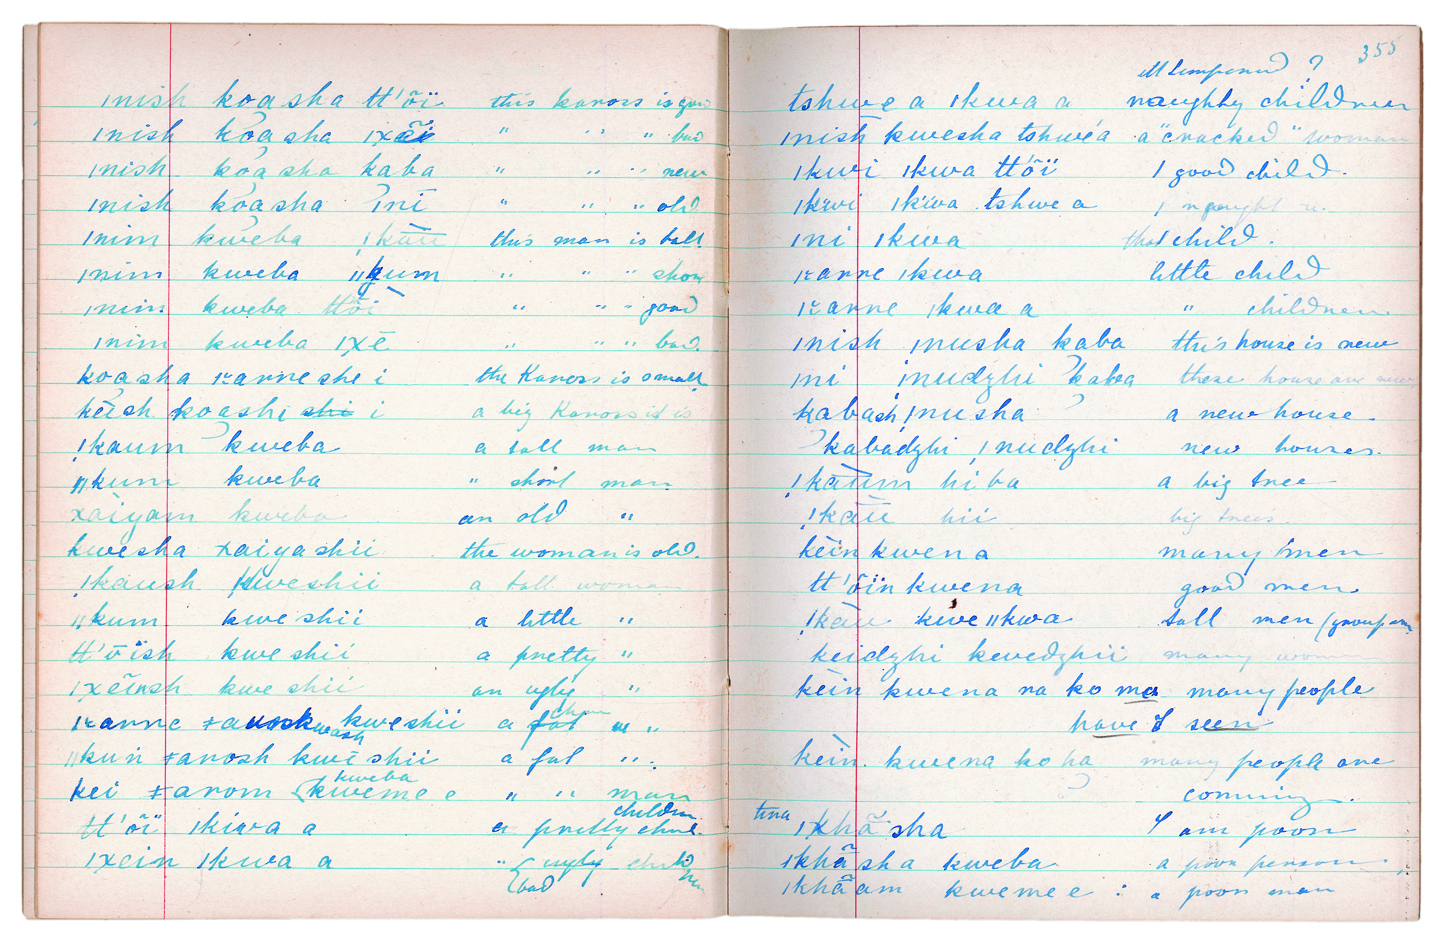 ınish koasha tt'õï this kaross is good
ınish koasha ıxãi " " " bad
ınish koasha kaba " " " new
ınish koasha ʔinī " " " old
ınim kweba !kãũ this man is tall
ınim kweba ııkum " " " short
ınim kweba ttõï " " " good
ınim kweba ıxē " " " bad.
koasha ıranneshe i the Kaross is small
kēish koashi shi i a big Kaross it is
!kaum kweba a tall man
ııkum kweba " short man
xaiyam kweba an old "
kwesha ǂaiyashii the woman is old.
!kaush kweshii a tall woman
ııkum kweshii a little "
tt'õïsh kweshii a pretty "
ıxēinsh kweshii an ugly "
ıranne ǂanosh kweshii a fat "
ııkun ǂanosh kweshii a fat "
kweba
kei ǂanom kwemee " " man
children
tt'õï ıkwa a a pretty child.
ıxein ıkwa a " ugly children
bad
355
ill tempered ?
tshwe a ıkwa a naughty children
ınish kwesha tshwéa a "cracked" woman
ıkwi ıkwa tt'õï 1 good child.
ıkwi ıkwa tshwe a 1 naught
ıni ıkwa that child.
ıranne ıkwa little child
ıranne ıkwa a " children
ınish ınusha kaba this house is new
ıni ınudzhi ʔkaba these house are new
kabash ınusha a new house.
ʔkabadzhi ınudzhi new houses.
!kãũm hiba a big tree
!kãũ hii big trees
kēin kwena many men
tt'õïn kwena good men.
!kãũ kweııkwa tall men (group
keidzhi kevedzhii many women
kēin kwena na ko ma many people
have I seen
kēin kwena ko ha many people are
coming.
tına ıkhã sha I am poor
ıkhãsha kweba a poor person.
ıkhãam kwemee : a poor man